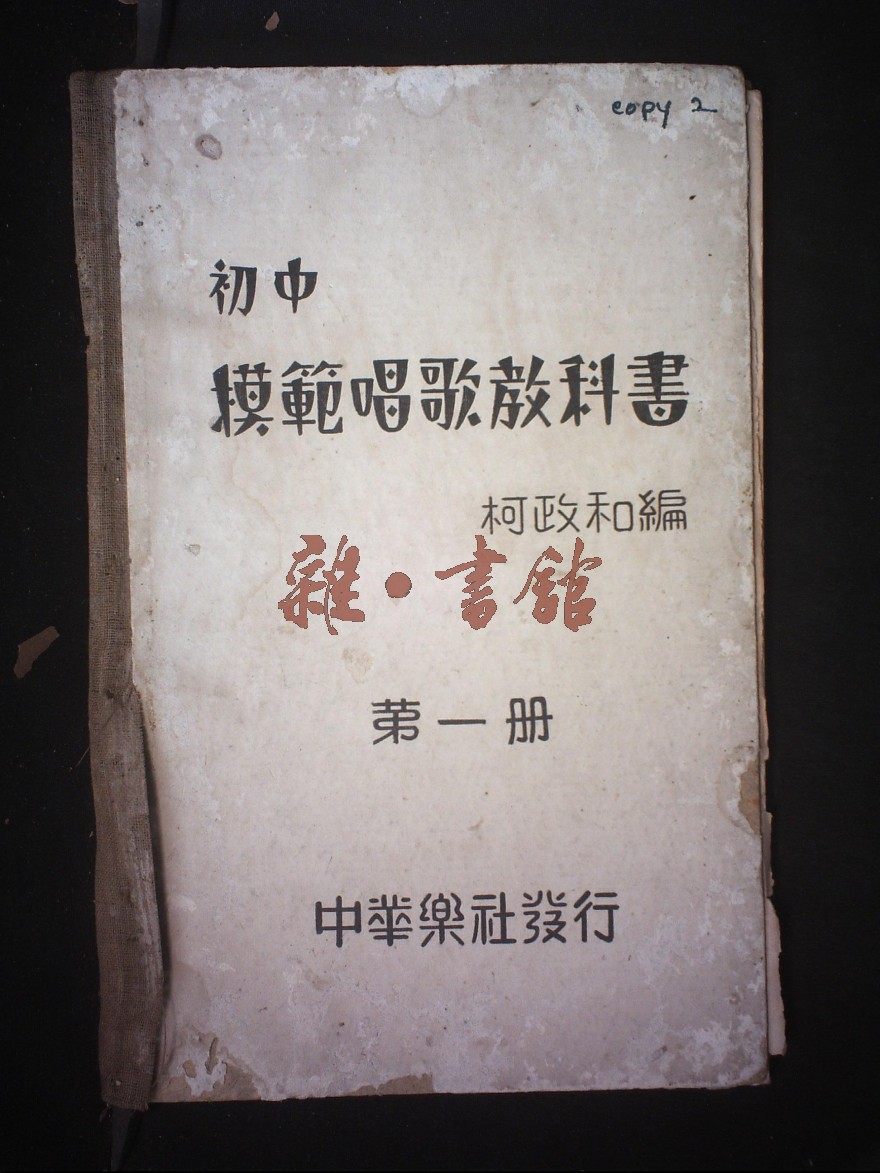 copy 2
初中
模範唱歌教科書
柯政和編
雜·書館
第一册
中華樂社發行